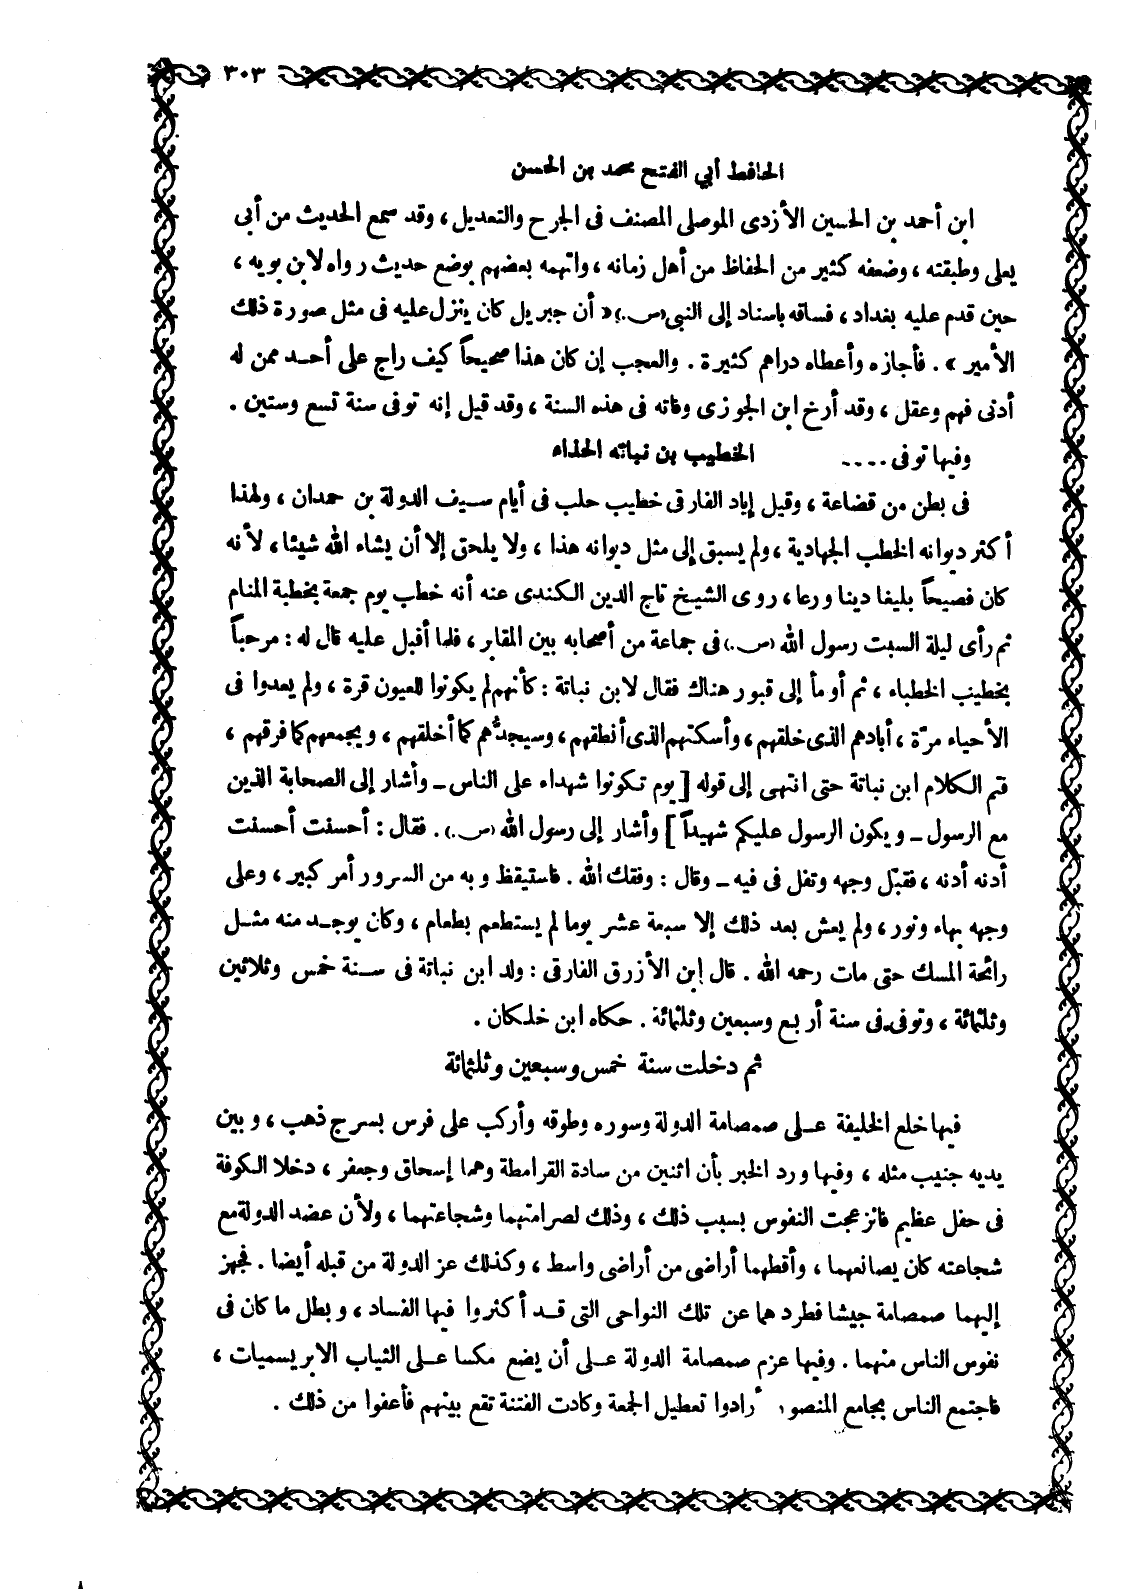 ٣٠٣
الحافظ أبي الفتح محمد بن الحسن
ابن أحمد بن الحسين الأزدى الموصلى المصنف فى الجرح والتعديل ، وقد سمع الحديث من أبى
يعلى وطبقته ، وضعفه كثير من الحفاظ من أهل زمانه ، واتهمه بعضهم بوضع حديث رواه لابن بويه ،
حين قدم عليه بغداد ، فساقه باسناد إلى النبي (س.) « أن جبريل كان ينزل عليه فى مثل صورة ذلك
الأمير » . فأجازه وأعطاه دراهم كثيرة . والعجب إن كان هذا صحيحاً كيف راج على أحد ممن له
أدنى فهم وعقل ، وقد أرخ ابن الجوزى وفاته فى هذه السنة ، وقد قيل إنه توفى سنة تسع وستين .
وفيها توفى .... الخطيب بن نباته الحذاء
فى بطن من قضاعة ، وقيل إياد الفارقى خطيب حلب فى أيام سيف الدولة بن حمدان ، ولهذا
أكثر ديوانه الخطب الجهادية ، ولم يسبق إلى مثل ديوانه هذا ، ولا يلحق إلا أن يشاء الله شيئا ، لأنه
كان فصيحاً بليغا دينا ورعا ، روى الشيخ تاج الدين الكندى عنه أنه خطب يوم جمعة بخطبة المنام
ثم رأى ليلة السبت رسول الله (س.) فى جماعة من أصحابه بين المقابر ، فلما أقبل عليه قال له : مرحباً
بخطيب الخطباء ، ثم أومأ إلى قبور هناك فقال لابن نباتة : كأنهم لم يكونوا للعيون قرة ، ولم يعدوا فى
الأحياء مرّة ، أبادهم الذى خلقهم ، وأسكتهم الذى أنطقهم ، وسيجدُّهم كما أخلقهم ، ويجمعهم كما فرقهم ،
فتم الكلام ابن نباتة حتى انتهى إلى قوله [ يوم تكونوا شهداء على الناس ــ وأشار إلى الصحابة الذين
مع الرسول ــ ويكون الرسول عليكم شهيداً ] وأشار إلى رسول الله (س.) . فقال : أحسنت أحسنت
أدنه أدنه ، فقبّل وجهه وتفل فى فيه ــ وقال : وفقك الله . فاستيقظ وبه من السرور أمر كبير ، وعلى
وجهه بهاء ونور ، ولم يعش بعد ذلك إلا سبعة عشر يوما لم يستطعم بطعام ، وكان يوجد منه مثل
رائحة المسك حتى مات رحمه الله . قال ابن الأزرق الفارقى : ولد ابن نباتة فى سنة خمس وثلاثين
وثلثمائة ، وتوفى فى سنة أربع وسبعين وثلثمائة . حكاه ابن خلكان .
ثم دخلت سنة خمس وسبعين وثلثمائة
فيها خلع الخليفة على صمصامة الدولة وسوره وطوقه وأركب على فرس بسرج ذهب ، وبين
يديه جنيب مثله ، وفيها ورد الخبر بأن اثنين من سادة القرامطة وهما إسحاق وجعفر ، دخلا الكوفة
فى حفل عظيم فانزعجت النفوس بسبب ذلك ، وذلك لصرامتهما وشجاعتهما ، ولأن عضد الدولة مع
شجاعته كان يصانعهما ، وأقطهما أراضى من أراضى واسط ، وكذلك عز الدولة من قبله أيضا . فجهز
إليهما صمصامة جيشا فطردهما عن تلك النواحى التى قد أكثروا فيها الفساد ، وبطل ما كان فى
نفوس الناس منهما . وفيها عزم صمصامة الدولة على أن يضع مكسا على الثياب الابريسميات ،
فاجتمع الناس بجامع المنصور أرادوا تعطيل الجمعة وكادت الفتنة تقع بينهم فأعفوا من ذلك .